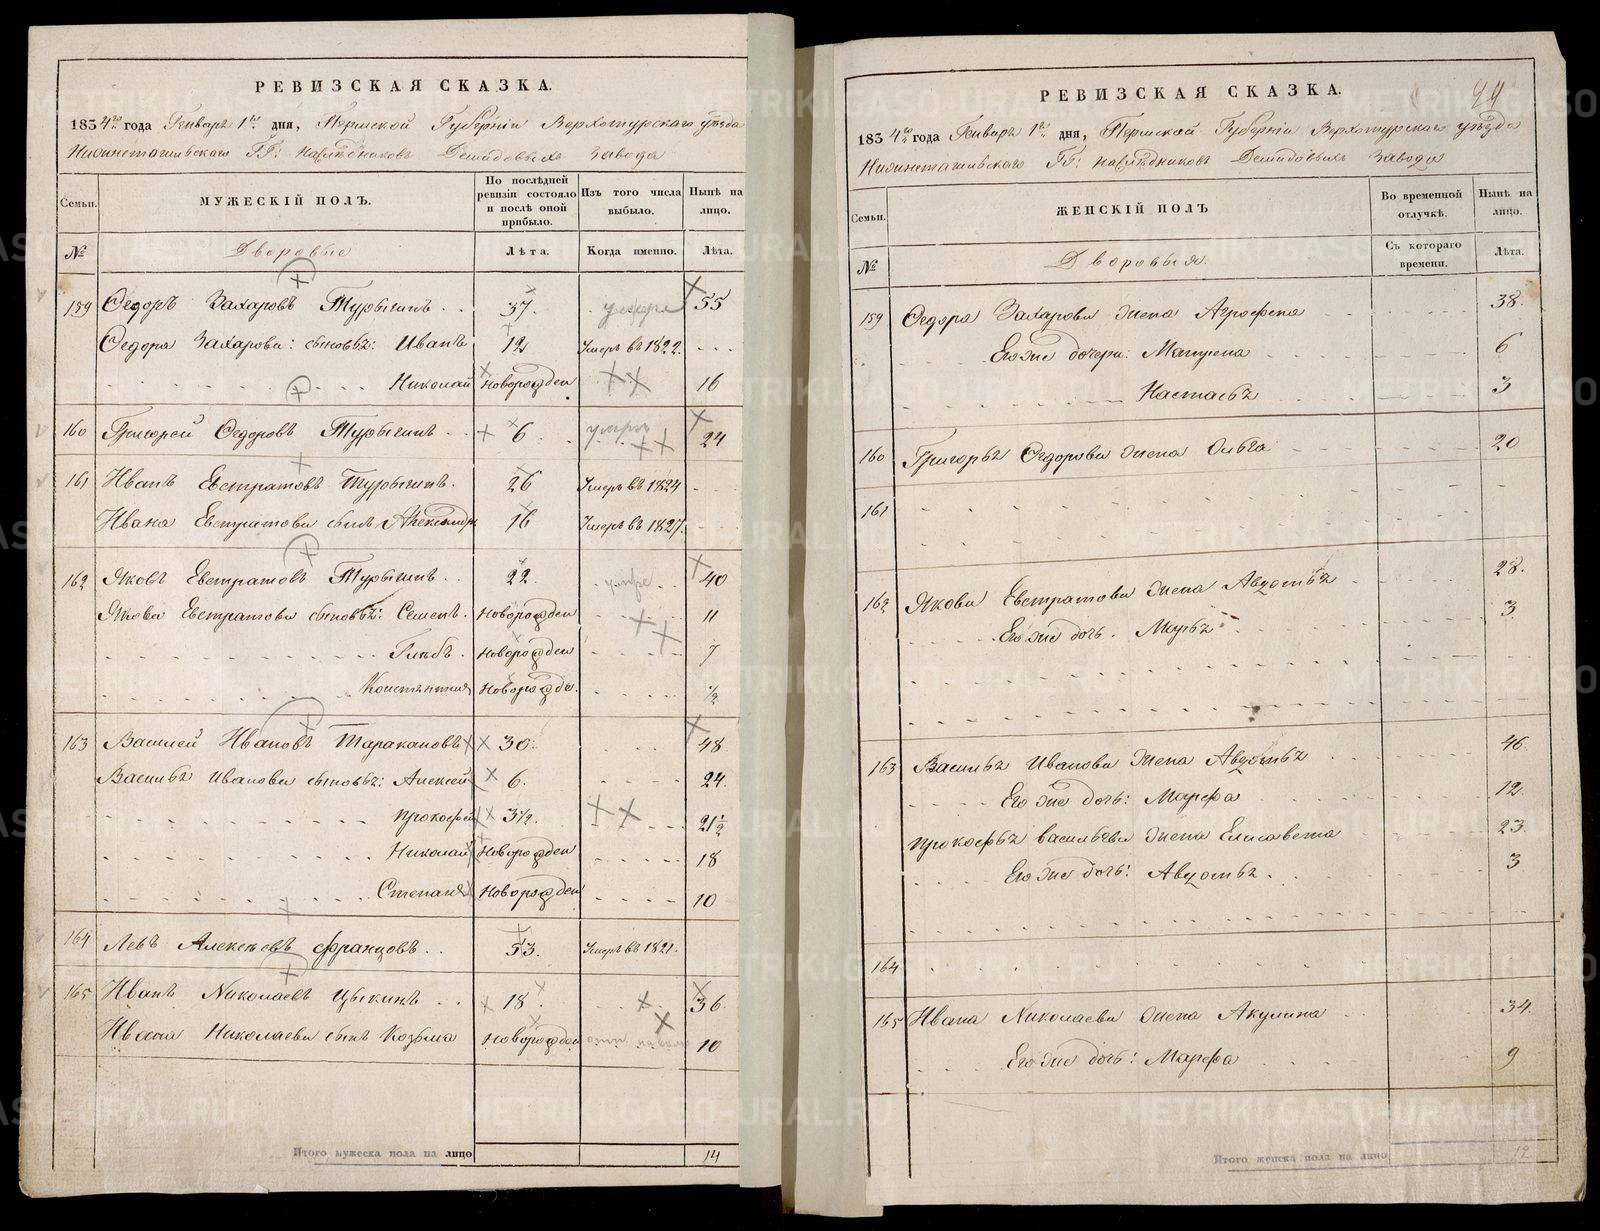 РЕВИЗСКАЯ СКАЗКА.
1834го года Генваря 1го дня, Пермской Губерніи Верхотурскаго уѣзда
Нижнетагильскаго ГГ: наслѣдниковъ Демидовыхъ завода
Семьи. МУЖЕСКІЙ ПОЛЪ. По послѣдней ревизіи состояло и послѣ оной прибыло. Изъ того числа выбыло. Нынѣ на лицо.
№ Дворовые Лѣта. Когда именно. Лѣта.
159 Ѳедоръ Захаровъ Турыгинъ . . 37. умеръ 55
Ѳедора Захарова: сыновьѣ: Иванъ 12 Умеръ въ 1822. . . .
Николай Новорожден 16
160 Григорей Ѳедоровъ Турыгинъ . . 6 . умеръ 24
161 Иванъ Евстратовъ Турыгинъ . 26 Умеръ въ 1824
Ивана Евстратова сынъ Александръ 16 Умеръ въ 1827.
162 Яковъ Евстратовъ Турыгинъ . . 22. умре 40
Якова Евстратова сыновьѣ: Семенъ . Новорожден 11
Глѣбъ . Новорожден 7
Константинъ Новорожде. ½
163 Василей Ивановъ Таракановъ 30. 48
Василья Иванова сыновьѣ: Алексей 6. 24.
Прокофей 3½. 21½
Николай Новорожден 18
Степанъ Новорожден 10
164 Левъ Алексѣевъ Францовъ . . 53. Умеръ въ 1821.
165 Иванъ Николаевъ Цыкинъ . . 18 . 36.
Ивана Николаева сынъ Козьма Новорожден 10
Итого мужеска пола на лицо 14
РЕВИЗСКАЯ СКАЗКА.
1834го года Генваря 1го дня, Пермской Губерніи Верхотурскаго уѣзда
Нижнетагильскаго ГГ: наслѣдниковъ Демидовыхъ завода
Семьи. ЖЕНСКІЙ ПОЛЪ Во временной отлучкѣ. Нынѣ на лицо.
№ Дворовыя. Съ котораго времени. Лѣта.
159 Ѳедора Захарова жена Агрофена 38.
Его же дочери: Матрена 6
Настасья 3
160 Григорья Ѳедорова жена Ольга 20
161
162 Якова Евстратова жена Авдотья 28.
Его же дочь . Марья 3.
163 Василья Иванова жена Авдотья 46.
Его же дочь: Марфа 12.
Прокофья Васильева жена Елисавета 23.
Его же дочь: Авдотья . 3
164
165 Ивана Николаева жена Акулина 34.
Его же дочь: Марфа 9
Итого женска пола на лицо 12
METRIKI.GASO-URAL.RU